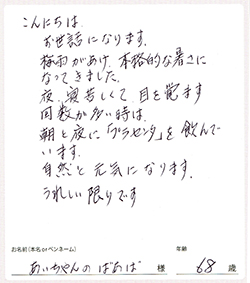 こんにちは、
お世話になります。
梅雨があけ、本格的な暑さに
なってきました。
夜、寝苦しくて目を覚ます
回数が多い時は、
朝と夜に「プラセンタ」を飲んで
います。
自然と元気になります。
うれしい限りです
お名前(本名orペンネーム) 年齢
あいちゃんのばあば 様 68 歳